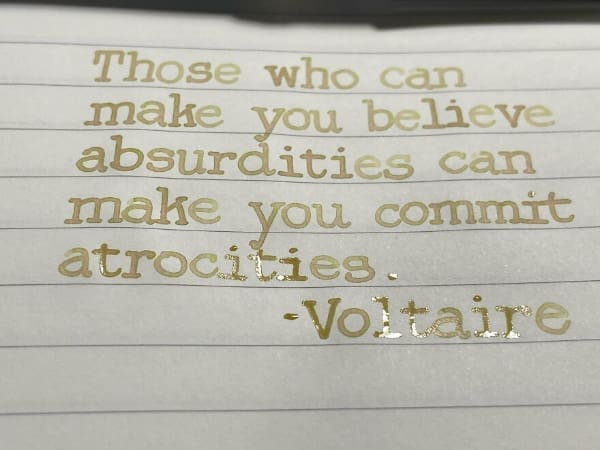 Those who can
make you believe
absurdities can
make you commit
atrocities.
-Voltaire